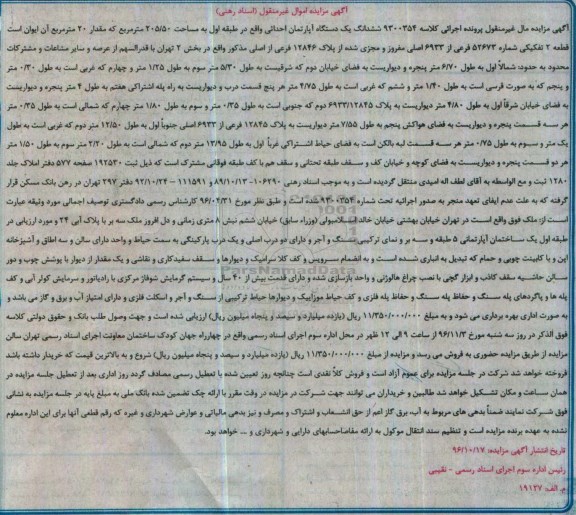 آگهی مزایده اموال غیرمنقول (اسناد رهنی)
آگهی مزایده مال غیرمنقول پرونده اجرائی کلاسه ۹۳۰۰۳۵۴ ششدانگ یک دستگاه آپارتمان احداثی واقع در طبقه اول به مساحت ۲۰۵/۵۰ مترمربع که مقدار ۲۰ مترمربع آن ایوان است
قطعه ۲ تفکیکی شماره ۵۲۶۷۳ فرعی از ۶۹۳۳ اصلی مفروز و مجزی شده از پلاک ۱۲۸۴۶ فرعی از اصلی مذکور واقع در بخش ۲ تهران با قدرالسهم از عرصه و سایر مشاعات و مشترکات
محدود به حدود: شمالاً اول به طول ۶/۷۰ متر پنجره و دیواریست به فضای خیابان دوم که شرقیست به طول ۵/۳۰ متر سوم به طول ۱/۲۵ متر و چهارم که غربی است به طول ۰/۳۰ متر
و پنجم که به صورت قرسی است به طول ۱/۴۰ متر و ششم که غربی است به طول ۴/۷۵ متر هر پنج قسمت درب و دیواریست به راه پله اشتراکی هفتم به طول ۴ متر پنجره و دیواریست
به فضای خیابان شرقاً اول به طول ۴/۸۰ متر دیواریست به پلاک ۶۹۳۳/۱۲۸۴۵ دوم که جنوبی است به طول ۰/۳۵ متر و سوم به طول ۱/۸۰ متر چهارم که شمالی است به طول ۰/۳۵ متر
هر سه قسمت پنجره و دیواریست به فضای هواکش پنجم به طول ۷/۵۵ متر دیواریست به پلاک ۱۲۸۴۵ فرعی از ۶۹۳۳ اصلی جنوباً اول به طول ۱۲/۵۰ متر دوم که غربی است به طول
یک متر و سیوم به طول ۰/۷۵ متر هر سه قسمت لبه بالکن است به فضای حیاط اشتراکی غرباً اول به طول ۱۲/۹۵ متر دوم که شمالی است به طول ۲/۲۰ متر سوم به طول ۱/۵۰ متر
هر دو قسمت پنجره و دیواریست به فضای کوچه و خیابان کف و سقف طبقه تحتانی و سقف هم با کف طبقه فوقانی مشترک است که ذیل ثبت ۱۹۲۵۳۰ صفحه ۵۷۷ دفتر املاک جلد
۱۲۸۰ ثبت و مع الواسطه به آقای لطف اله اصیدی منتقل گردیده است و به موجب اسناد رهنی ۱۰۶۲۹۰- ۸۹/۱۰/۱۳ و ۱۱۱۵۹۱ – ۹۲/۱۰/۲۴ دفتر ۲۹۷ تهران در رهن بانک مسکن قرار
گرفته که به علت عدم ایفای تعهد منجر به صدور اجرائیه تحت شماره ۹۳۰۰۳۵۴ شده است و طبق نظر مورخ ۹۶/۰۴/۳۱ کارشناس رسمی دادگستری توصیف اجمالی مورد وثیقه عبارت
است از: ملک فوق واقع است در تهران خیابان بهشتی خیابان خالد اسلامبولی (وزراء سابق) خیابان ششم نبش ۸ متری زمانی و دل افروز ملک سه بر با پلاک آبی ۲۴ و مورد ارزیابی در
طبقه اول یک ساختمان آپارتمانی ۵ طبقه و سه بر و نمای ترکیبی سنگ و آجر و دارای دو درب اصلی و یک درب پارکینگی به سمت حیاط و واحد دارای سالن و سه اطاق و آشپزخانه
اپن و با کابینت چوبی و حمام که تبدیل به انباری شده است و به انضمام سرویس و کف کلا سرامیک و دیوارها و سقف سفیدکاری و نقاشی و یک مقدار از دیوار با پوشش چوب و دور
سالن حاشیه سقف کاذب و ابزار گچی با نصب چراغ هالوژنی و واحد بازسازی شده و دارای قدمت بیش از ۴۰ سال و سیستم گرمایش شوفاژ مرکزی با رادیاتور و سرمایش کولر آبی و کف
پله ها و پاگردهای پله سنگ و حفاظ پله سنگ و حفاظ پله فلزی و کف حیاط موزاییک و دیوارها حیاط ترکیبی از سنگ و آجر و اسکلت فلزی و دارای امتیاز آب و برق و گاز می باشد و
به صورت اداری بهره برداری می شود و به مبلغ ۱۱/۳۵۰/۰۰۰/۰۰۰ ریال (یازده میلیارد و سیصد و پنجاه میلیون ریال) ارزیابی شده است و جهت وصول طلب بانک و حقوق دولتی کلاسه
فوق الذکر در روز سه شنبه مورخ ۹۶/۱۱/۳ از ساعت ۹ الی ۱۲ ظهر در محل اداره سوم اجرای اسناد رسمی واقع در چهارراه جهان کودک ساختمان معاونت اجرای اسناد رسمی تهران سالن
مزایده از طریق مزایده حضوری به فروش می رسد و مزایده از مبلغ ۱۱/۳۵۰/۰۰۰/۰۰۰ ریال (یازده میلیارد و سیصد و پنجاه میلیون ریال) شروع و به بالاترین قیمت که خریدار داشته باشد
فروخته خواهد شد شرکت در جلسه مزایده برای عموم آزاد است و فروش کلاً نقدی است چنانچه روز تعیین شده با تعطیل رسمی مصادف گردد روز اداری بعد از تعطیل جلسه مزایده در
همان ساعت و مکان تشکیل خواهد شد طالبین و خریداران می توانند جهت شرکت در مزایده در وقت مقرر با ارائه چک تضمین شده بانک ملی به مبلغ پایه در جلسه مزایده به نشانی
فوق شرکت نمایند ضمناً بدهی های مربوط به آب، برق گاز اعم از حق انشعاب و اشتراک و مصرف و نیز بدهی مالیاتی و عوارض شهرداری و غیره که رقم قطعی آنها برای این اداره معلوم
نشده به عهده برنده مزایده است و تنظیم سند انتقال موکول به ارائه مفاصاحسابهای دارایی و شهرداری و ... خواهد بود.
تاریخ انتشار آگهی مزایده: ۹۶/۱۰/۱۷
رئیس اداره سوم اجرای اسناد رسمی – نقیبی
م. الف: ۱۹۱۲۷